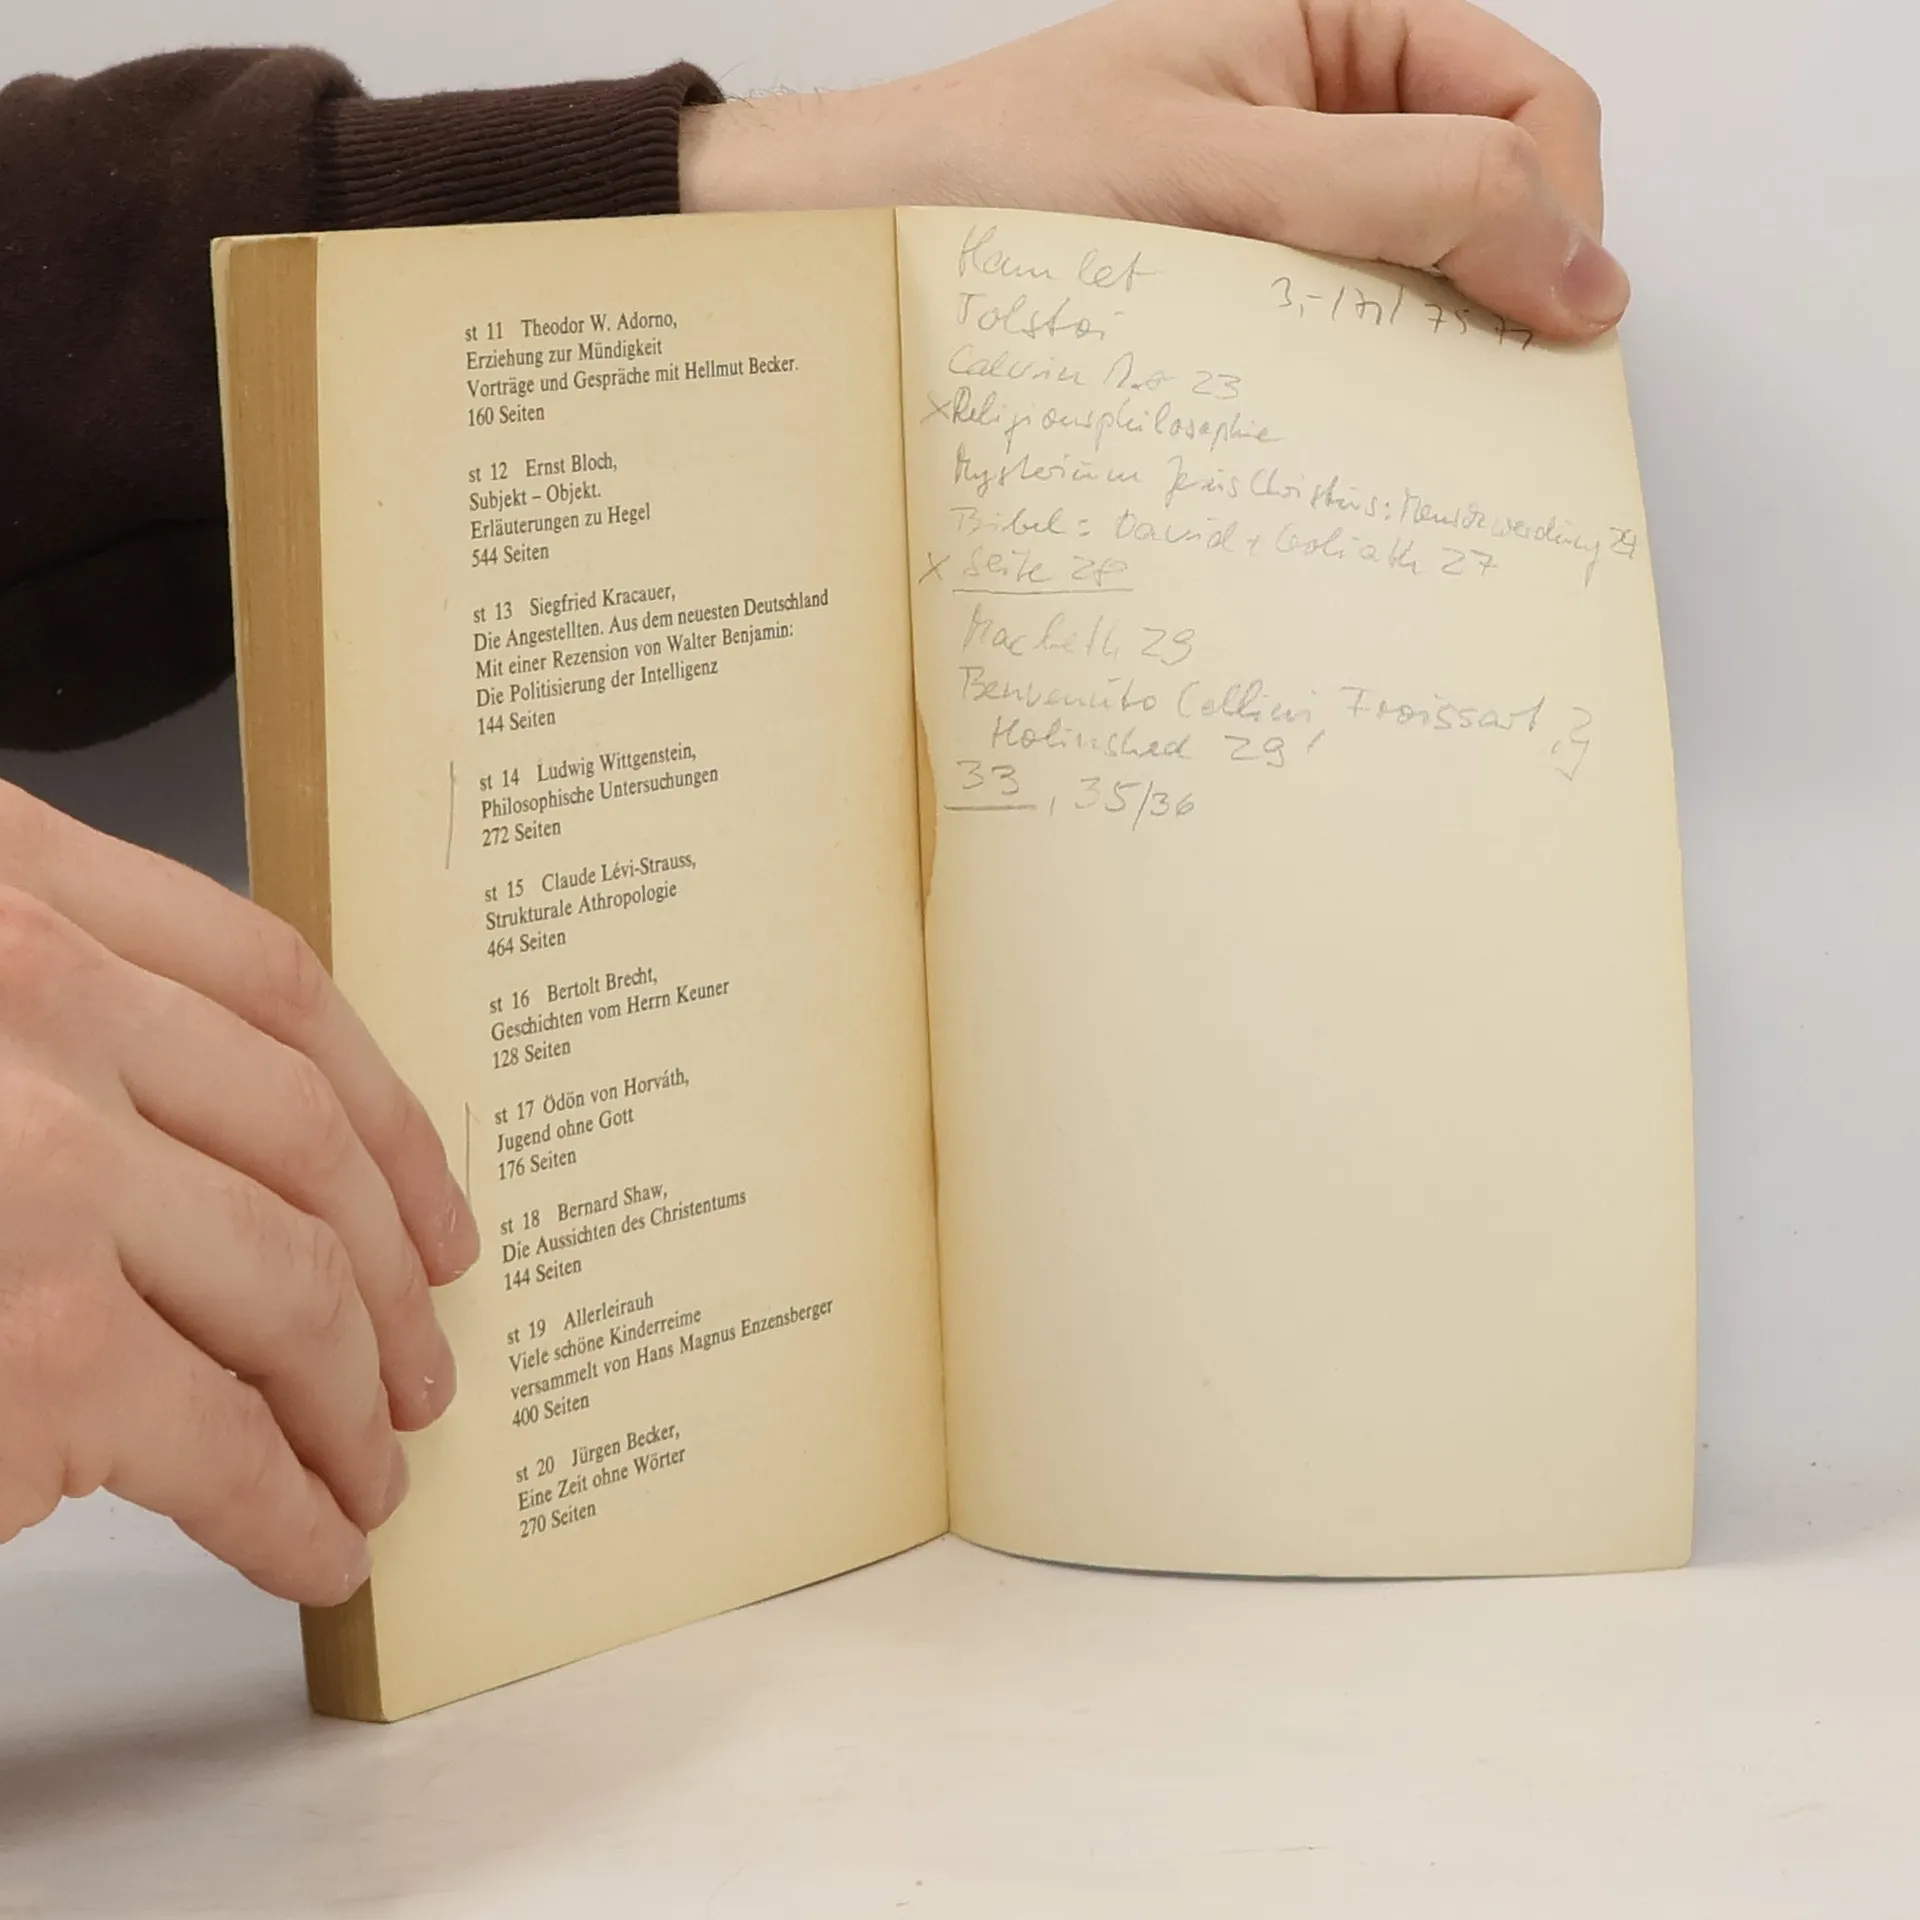 st 11 Theodor W. Adorno,
Erziehung zur Mündigkeit
Vorträge und Gespräche mit Hellmut Becker.
160 Seiten
st 12 Ernst Bloch,
Subjekt – Objekt.
Erläuterungen zu Hegel
544 Seiten
st 13 Siegfried Kracauer,
Die Angestellten. Aus dem neuesten Deutschland
Mit einer Rezension von Walter Benjamin:
Die Politisierung der Intelligenz
144 Seiten
st 14 Ludwig Wittgenstein,
Philosophische Untersuchungen
272 Seiten
st 15 Claude Lévi-Strauss,
Strukturale Athropologie
464 Seiten
st 16 Bertolt Brecht,
Geschichten vom Herrn Keuner
128 Seiten
st 17 Ödön von Horváth,
Jugend ohne Gott
176 Seiten
st 18 Bernard Shaw,
Die Aussichten des Christentums
144 Seiten
st 19 Allerleirauh
Viele schöne Kinderreime
versammelt von Hans Magnus Enzensberger
400 Seiten
st 20 Jürgen Becker,
Eine Zeit ohne Wörter
270 Seiten
Hamlet
3,-
Tolstoi
23
x Religionsphilosophie
Mysterium Jesus Christus: Menschwerdung 24
Bibel: David + Goliath 27
x Seite 28
Macbeth 29
Benvenuto Cellini, Froissart,
Holinshed 29
33, 35/36